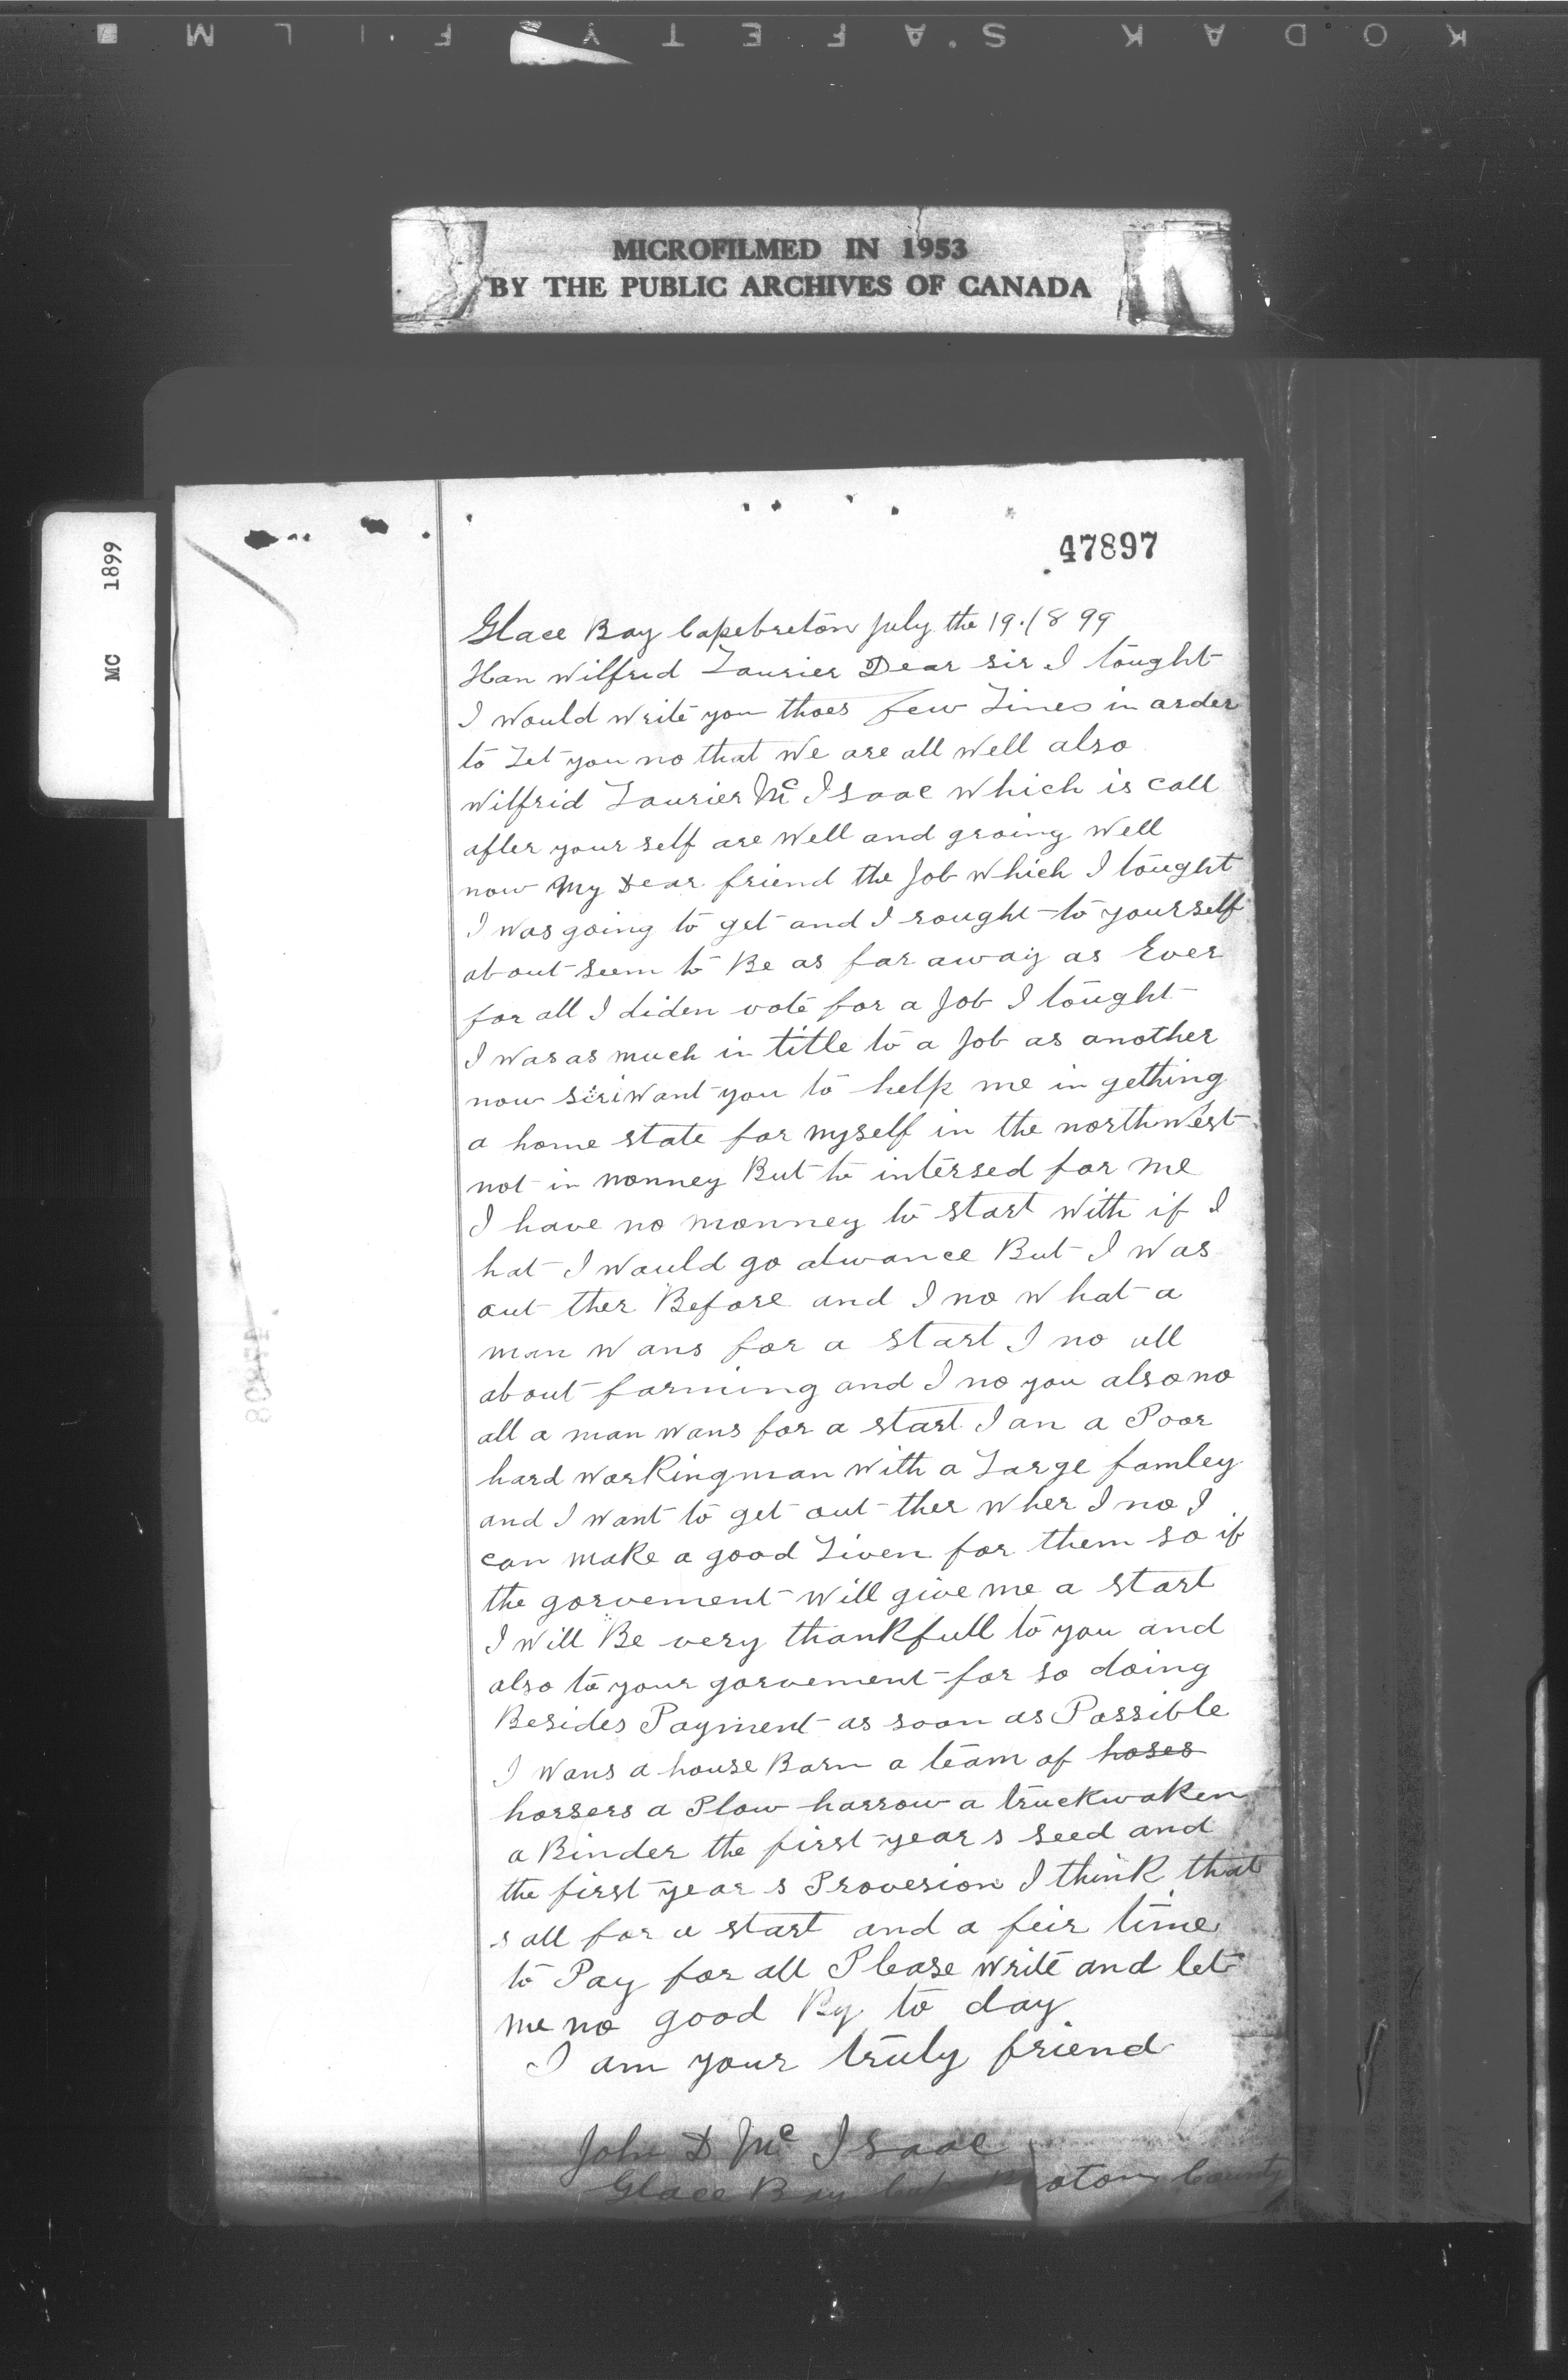 KODAK SAFETY FILM
MICROFILMED IN 1953
BY THE PUBLIC ARCHIVES OF CANADA
MC 1899
47897
Glace Bay Capebreton July the 19.1899
Han Wilfrid Laurier Dear sir I tought
I would write you thoes few Lines in arder
to Let you no that we are all well also
Wilfrid Laurier Mc Isaac which is call
after your self are well and groing well
now My Dear friend the Job which I tought
I was going to get and I rought to yourself
about seem to Be as far away as Ever
for all I diden vote for a Job I tought
I was as much in title to a Job as another
now sir i want you to help me in gething
a home state for myself in the northwest
not in monney But to intersed for me
I have no monney to start with if I
hat I would go atwance But I was
out ther Before and I no what a
man wans for a start I no all
about farming and I no you also no
all a man wans for a start I an a Poor
hard workingman with a Large famley
and I want to get out ther wher I no I
can make a good Liven for them so if
the gorvement will give me a start
I will Be very thankfull to you and
also to your gorvement for so doing
Besides Payment as soon as Possible
I wans a house Barn a team of hoses
horsers a Plow harrow a truckwaken
a Binder the first year s seed and
the first year s Provesion I think that
s all for a start and a feir time
to Pay for all Please write and let
me no good By to day
I am your truly friend
John D Mc Isaac
Glace Bay County